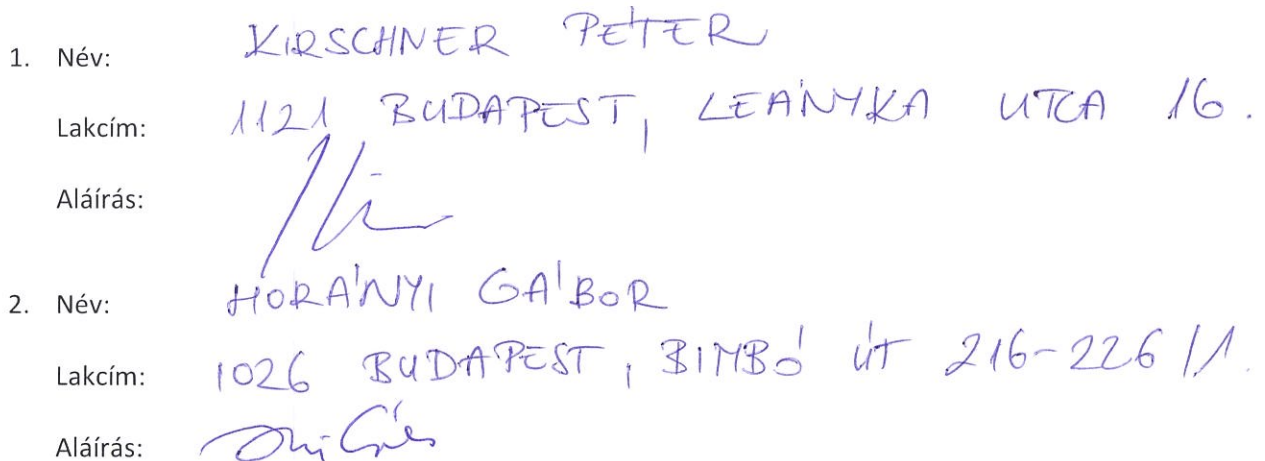 1. Név: KIRSCHNER PÉTER
Lakcím: 1121 BUDAPEST, LEÁNYKA UTCA 16.
Aláírás:
2. Név: HORÁNYI GÁBOR
Lakcím: 1026 BUDAPEST, BIMBÓ ÚT 216-226/1.
Aláírás: